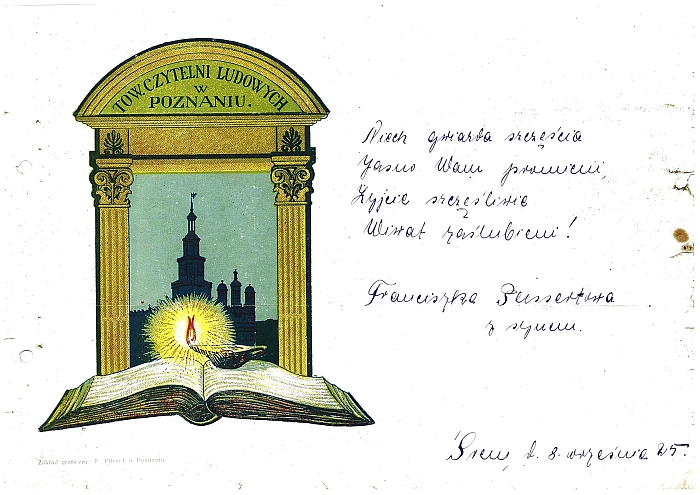 TOW. CZYTELNI LUDOWYCH
W
POZNANIU.
Niech gwiazda szczęścia
Jasno Wam promieni,
Żyjcie szczęśliwie
Wiwat zaślubieni!
Franciszka
z synem.
Śrem, d. 8. września 25.
Zakład graficzny F. Pilczek w Poznaniu.